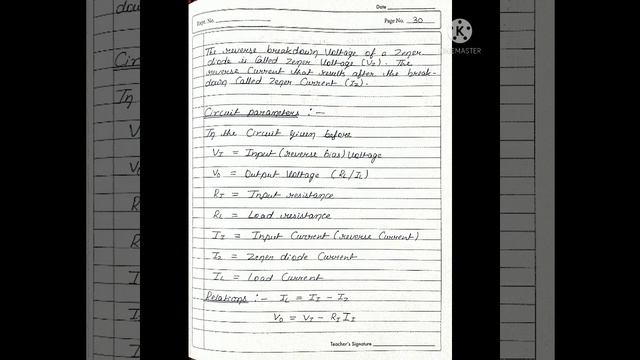 Date
Expt. No.
Page No. 30
The reverse breakdown voltage of a Zener
diode is called Zener Voltage (Vz). The
reverse current that results after the break-
down called Zener Current (Iz).
Circuit parameters :-
In the circuit given before
VI = Input (reverse bias) Voltage
V0 = Output Voltage (RL/IL)
RI = Input resistance
RL = Load resistance
II = Input Current (reverse Current)
Iz = Zener diode Current
IL = Load Current
Relations :- IL = II - Iz
V0 = VI - RI II
Teacher's Signature